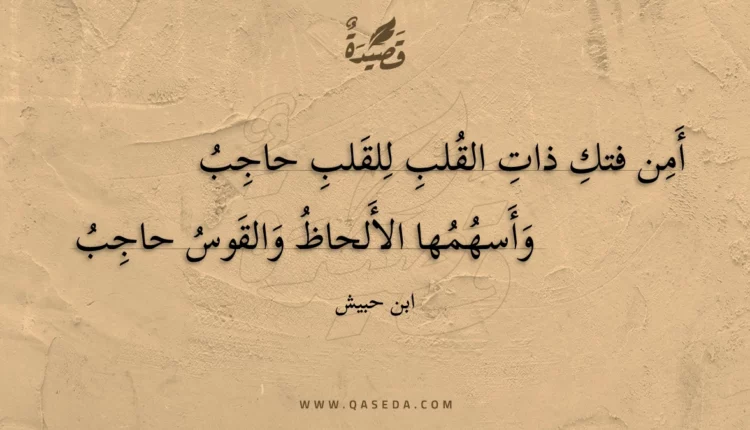 قَصِيْدَةٌ
أَمِن فتكِ ذاتِ القُلبِ لِلقَلبِ حاجِبُ
وَأَسهُمُها الأَلحاظُ وَالقَوسُ حاجِبُ
ابن حبيش
WWW.QASEDA.COM